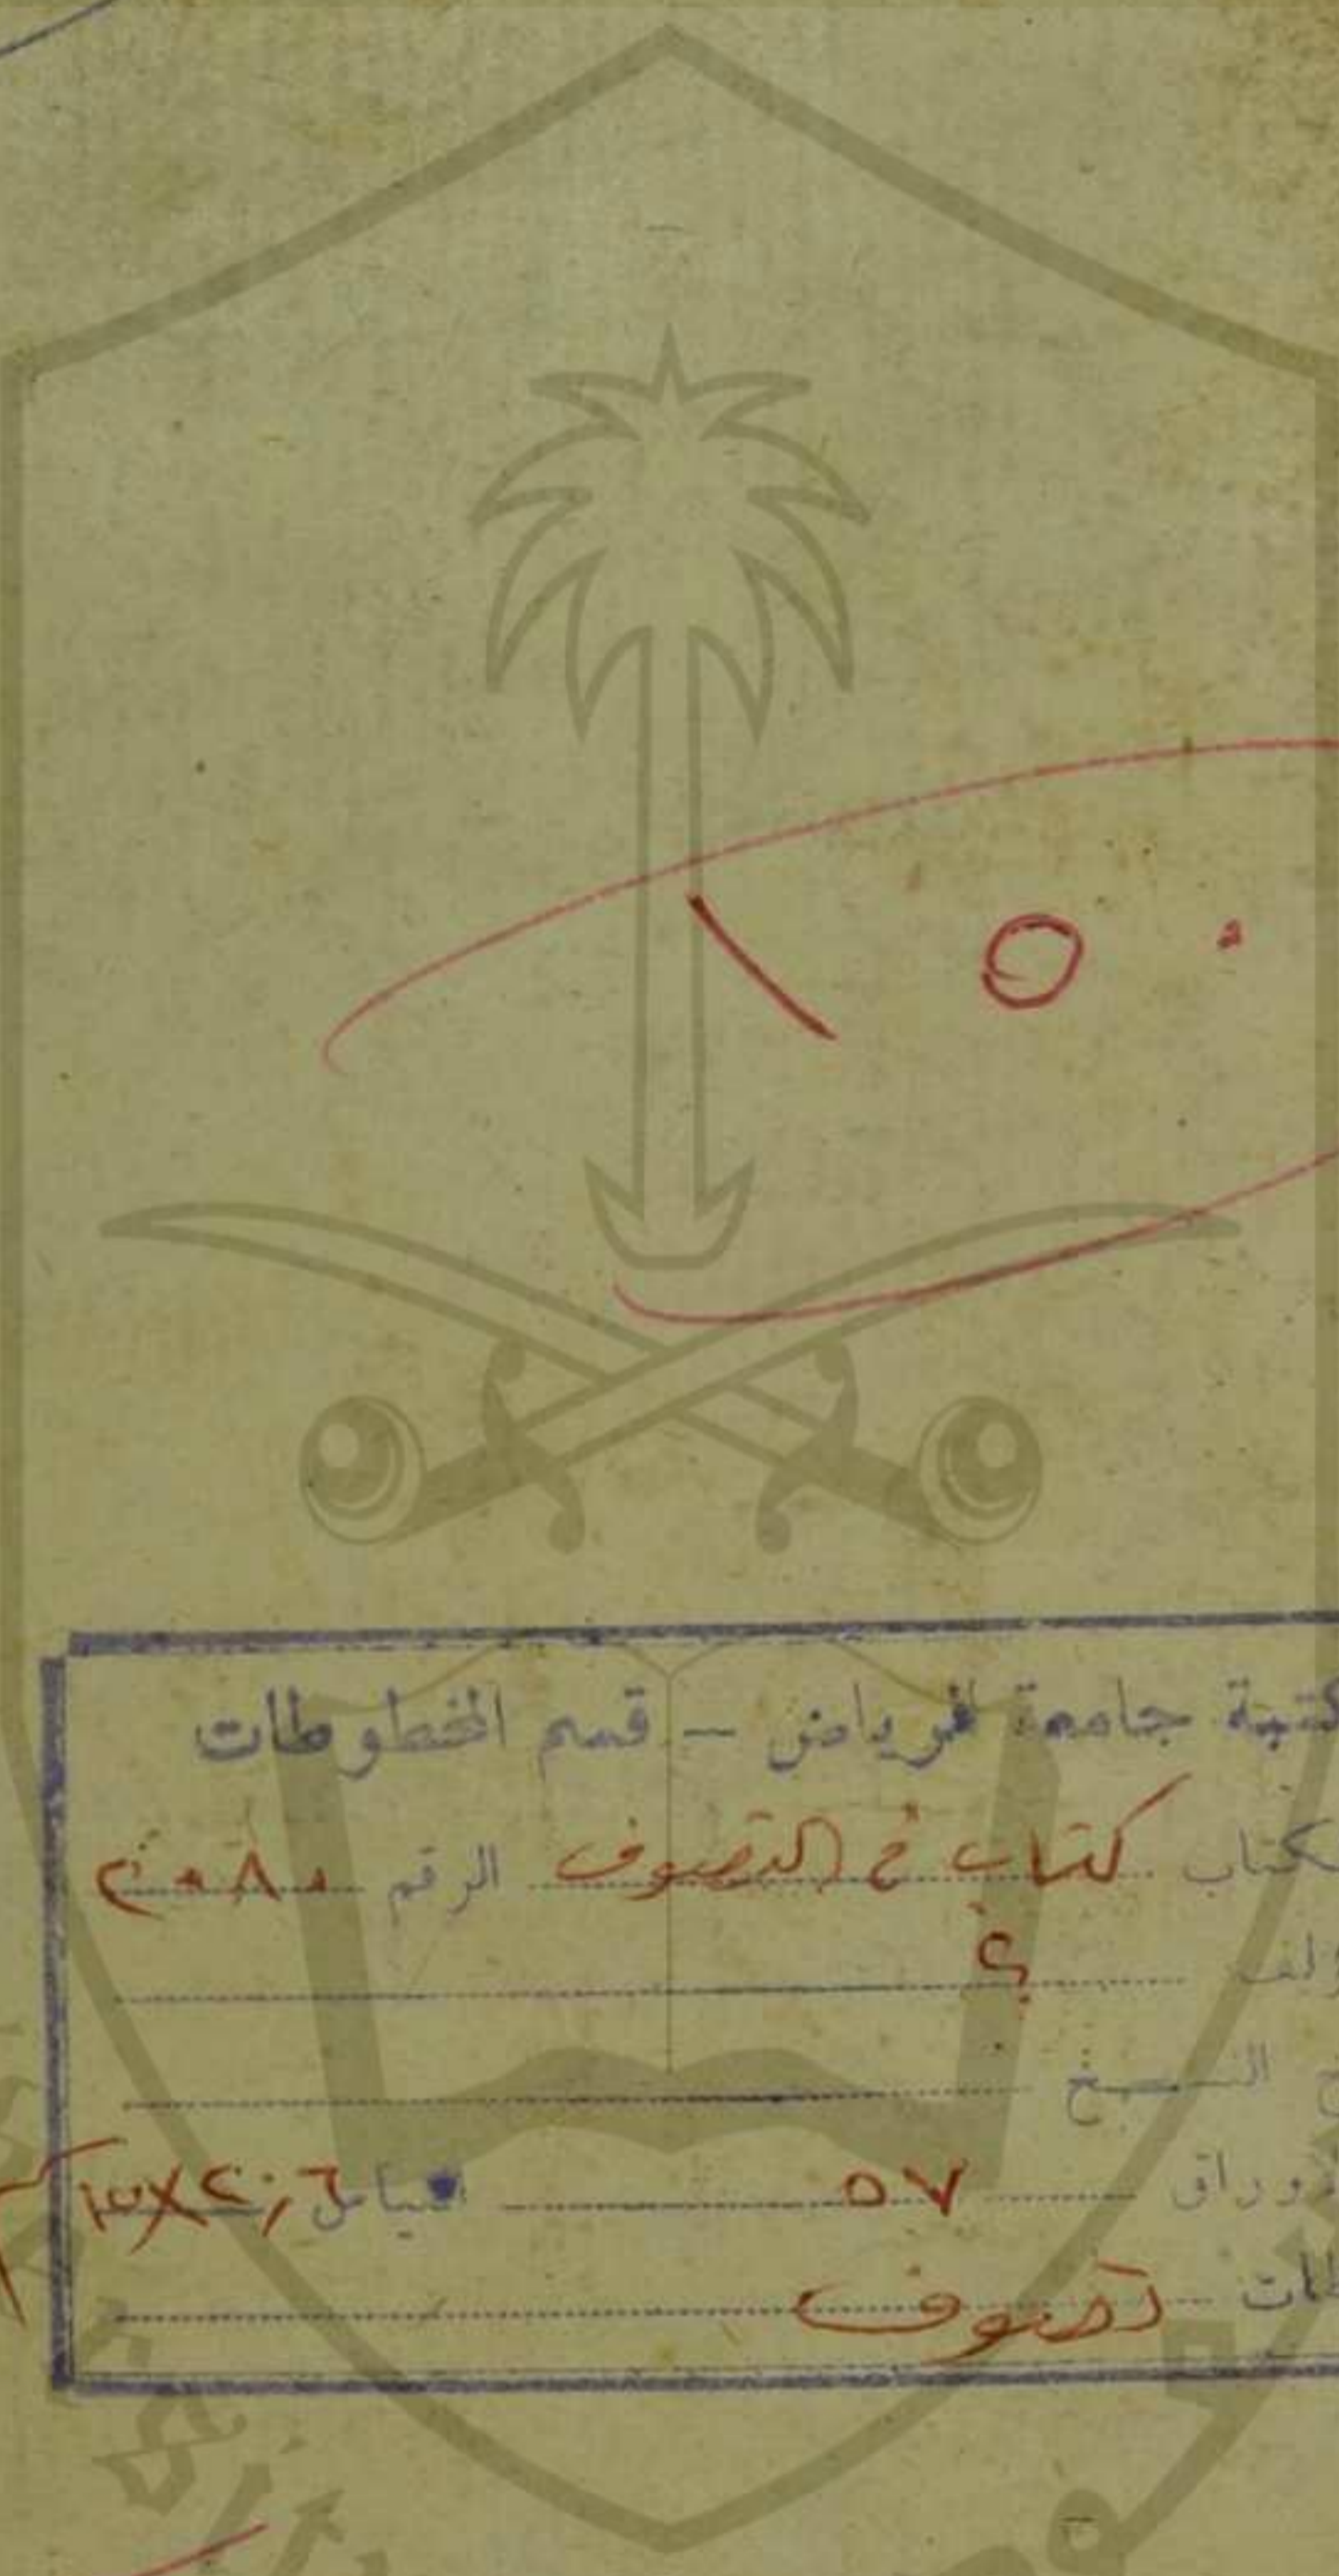 ١٥٠
كتبة جامعة الرياض - قسم المخطوطات
كتاب كتاب في التصوف الرقم ٢٠٨٠
ؤلف ؟
خ النسخ
وراق ٥٧ قياس
تصوف